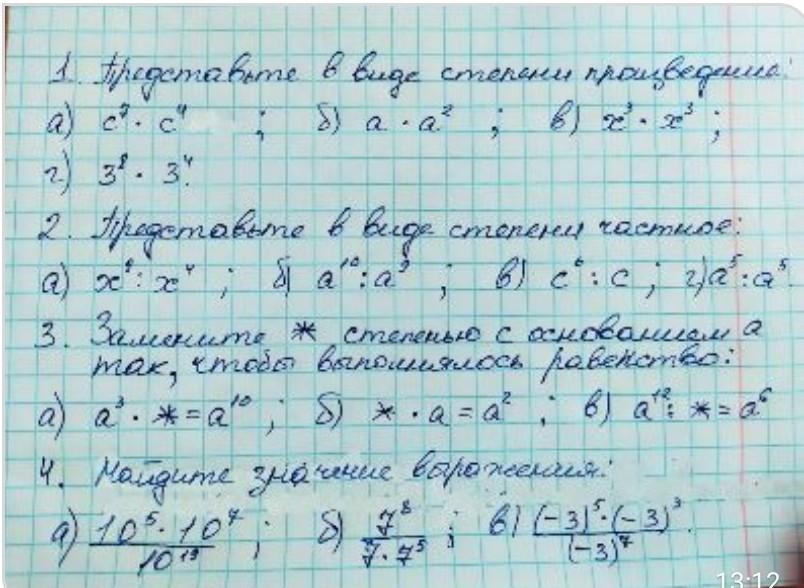 1. Представьте в виде степени произведение:
а) c⁷ · c⁴ ; б) a · a² ; в) x³ · x³ ;
г) 3⁸ · 3⁴.
2. Представьте в виде степени частное:
а) x⁸ : x⁴ ; б) a¹⁰ : a⁹ ; в) c⁶ : c ; г) a⁵ : a⁵.
3. Замените * степенью с основанием a
так, чтобы выполнялось равенство:
а) a³ · * = a¹⁰ ; б) * · a = a² ; в) a¹² : * = a⁶
4. Найдите значение выражения:
а) 10⁵ · 10⁷ / 10¹³ ; б) 7⁸ / 7 · 7⁵ ; в) (-3)⁵ · (-3)³ / (-3)⁷.
13:12